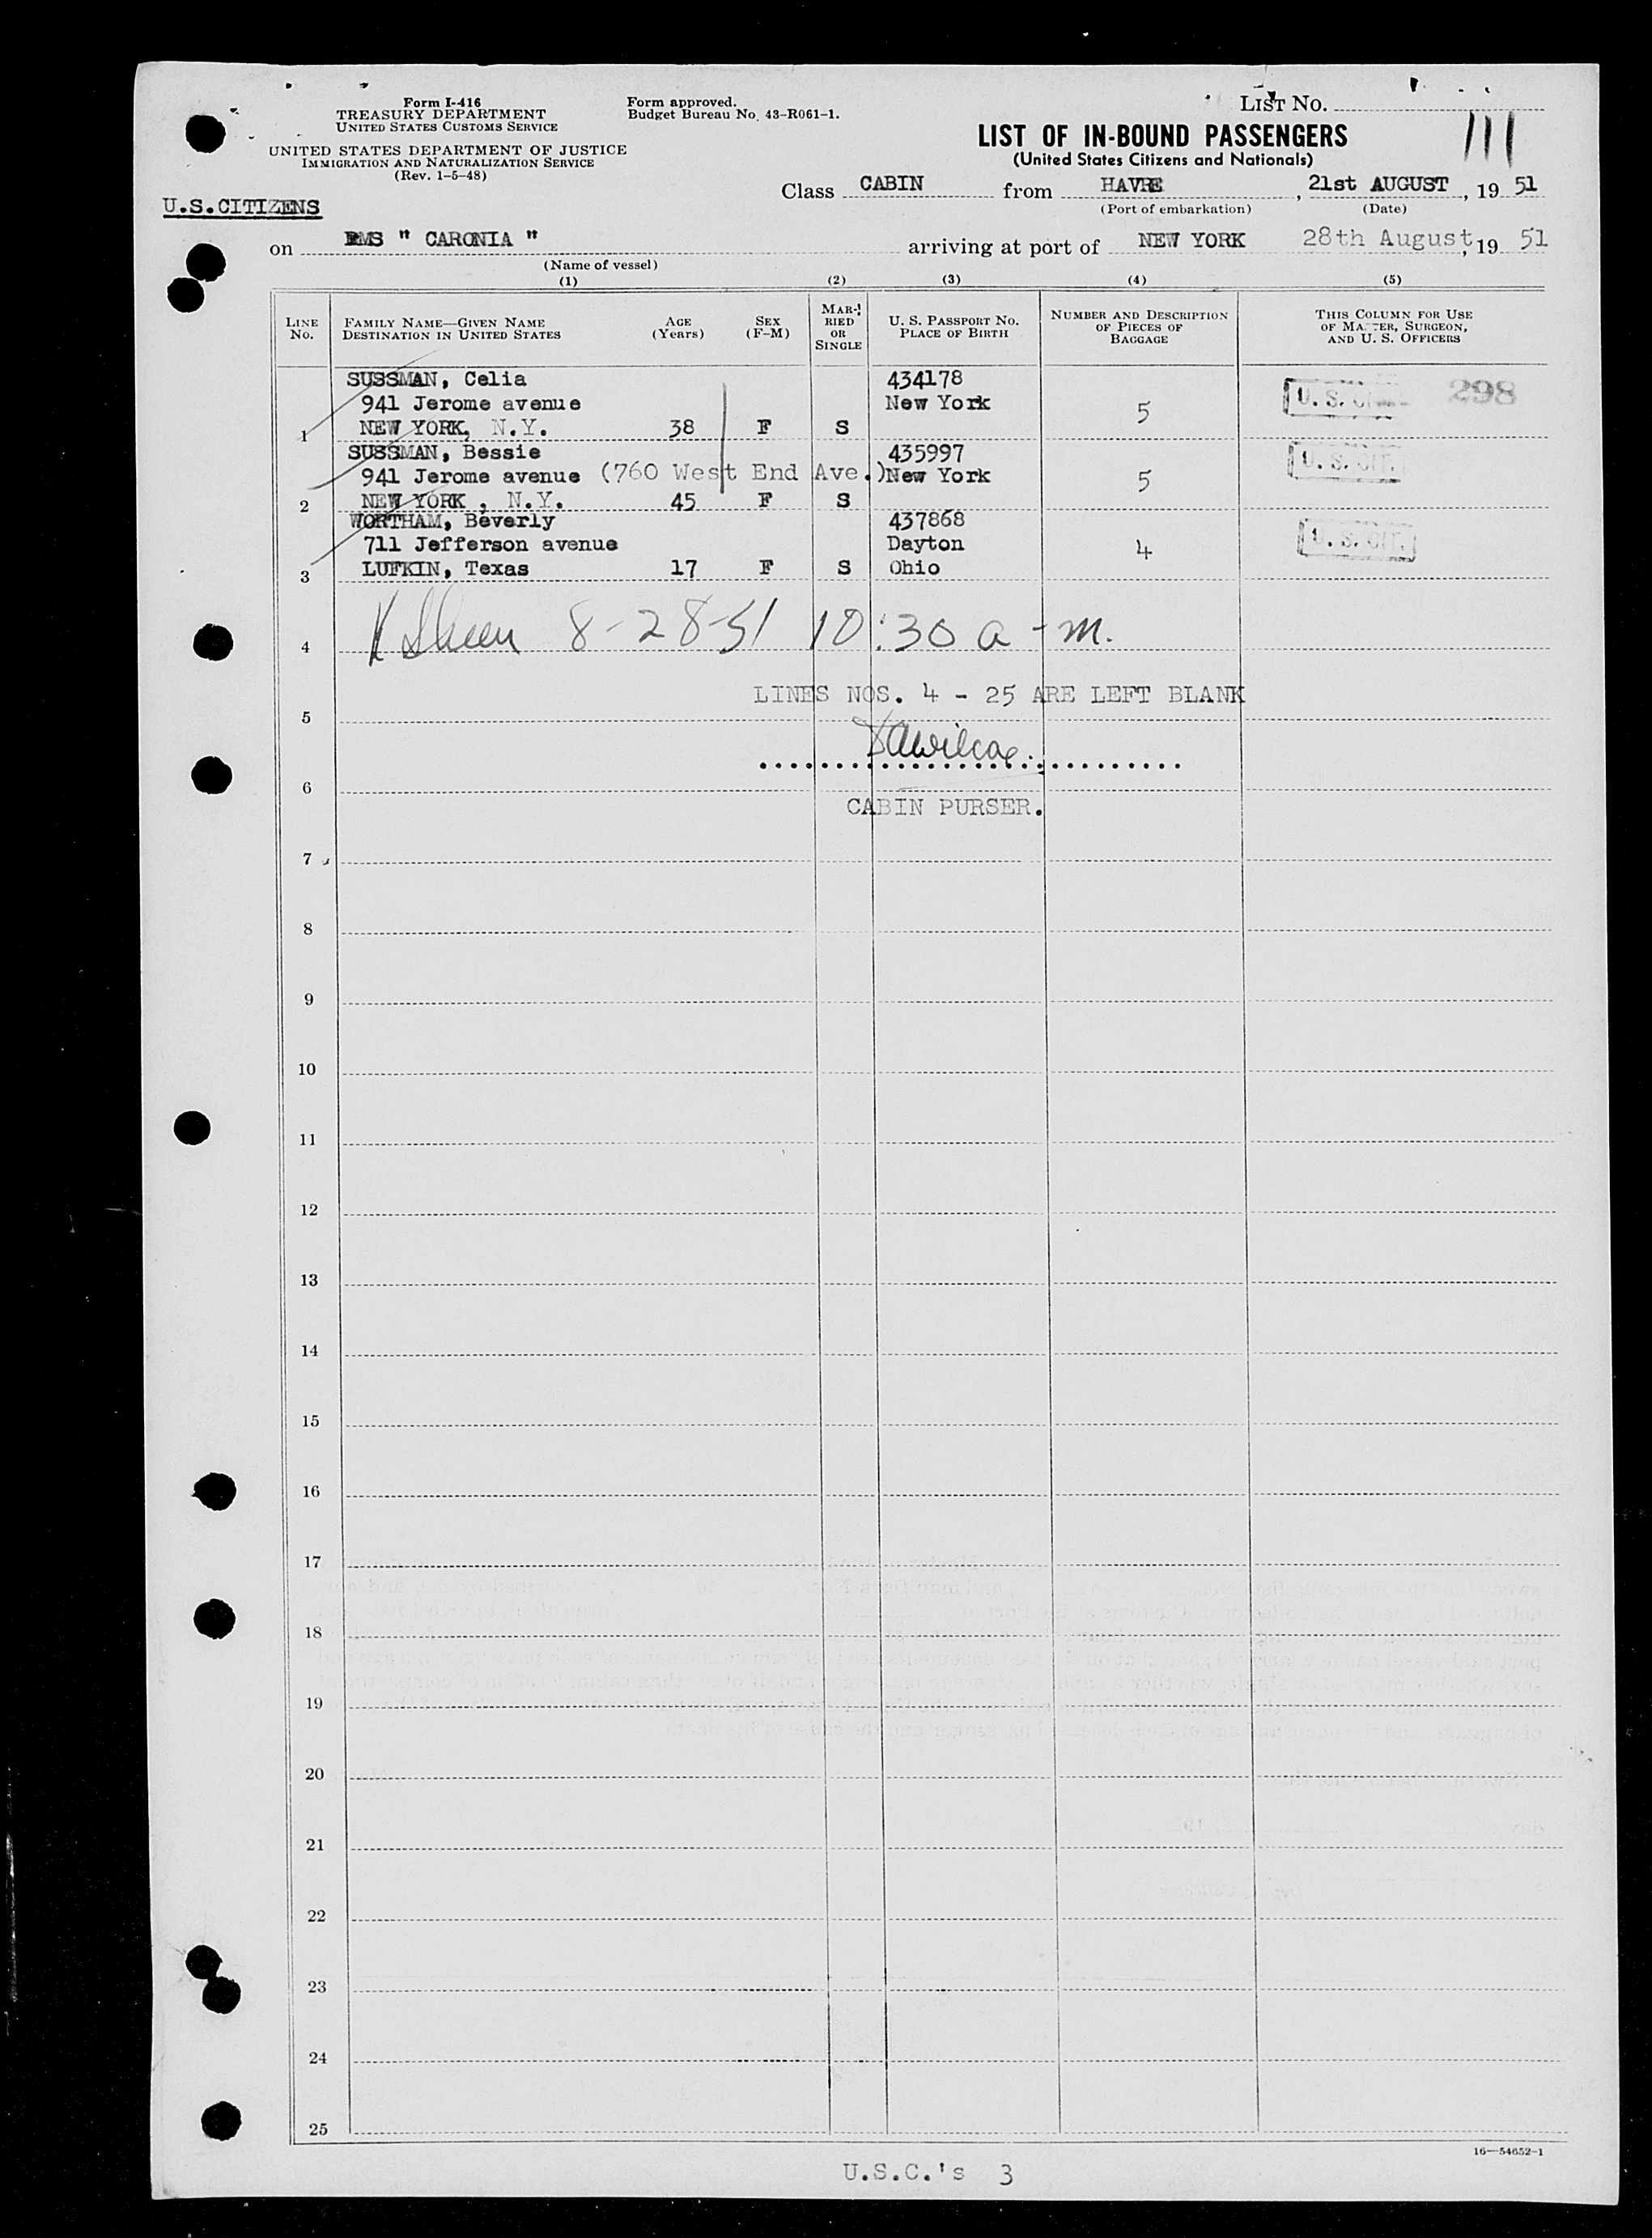 Form I-416
TREASURY DEPARTMENT
UNITED STATES CUSTOMS SERVICE
UNITED STATES DEPARTMENT OF JUSTICE
IMMIGRATION AND NATURALIZATION SERVICE
(Rev. 1-5-48)
Form approved.
Budget Bureau No. 43-R061-1.
LIST NO.
111
LIST OF IN-BOUND PASSENGERS
(United States Citizens and Nationals)
U.S.CITIZENS
Class CABIN from HAVRE, 21st AUGUST, 19 51
(Port of embarkation) (Date)
on RMS " CARONIA " arriving at port of NEW YORK 28th August, 19 51
(Name of vessel)
(1) (2) (3) (4) (5)
LINE No. FAMILY NAME—GIVEN NAME DESTINATION IN UNITED STATES AGE (Years) SEX (F-M) MARRIED OR SINGLE U. S. PASSPORT NO. PLACE OF BIRTH NUMBER AND DESCRIPTION OF PIECES OF BAGGAGE THIS COLUMN FOR USE OF MASTER, SURGEON, AND U. S. OFFICERS
SUSSMAN, Celia 434178
941 Jerome avenue New York 5 U. S. CIT. 298
1 NEW YORK, N.Y. 38 F S
SUSSMAN, Bessie 435997
941 Jerome avenue (760 West End Ave.) New York 5 U. S. CIT.
2 NEW YORK , N.Y. 45 F S
WORTHAM, Beverly 437868
711 Jefferson avenue Dayton 4 U. S. CIT.
3 LUFKIN, Texas 17 F S Ohio
4 8-28-51 10:30 a-m.
LINES NOS. 4 - 25 ARE LEFT BLANK
5
6
CABIN PURSER.
7
8
9
10
11
12
13
14
15
16
17
18
19
20
21
22
23
24
25
16—54652-1
U.S.C.'s 3